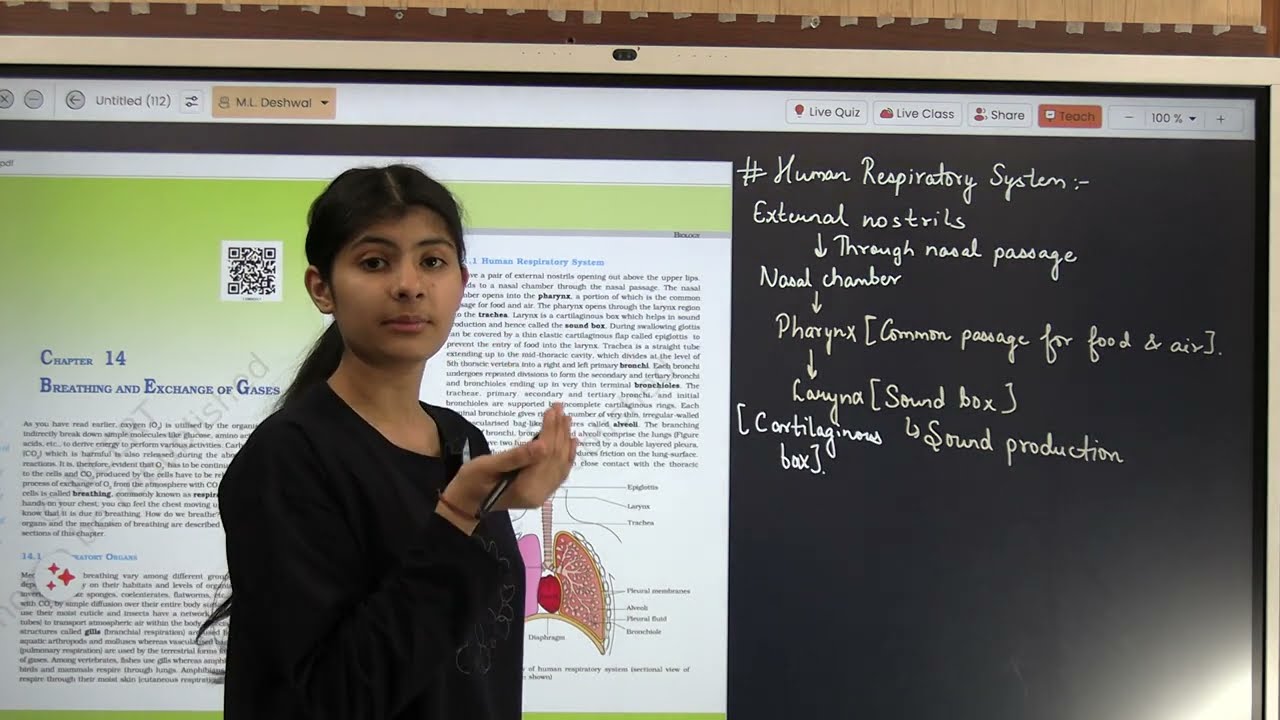 Untitled (112)
M.L. Deshwal
Live Quiz
Live Class
Share
Teach
100 %
pdf
BIOLOGY
CHAPTER 14
BREATHING AND EXCHANGE OF GASES
As you have read earlier, oxygen (O2) is utilised by the
indirectly break down simple molecules like glucose, amino
acids, etc., to derive energy to perform various activities.
(CO2) which is harmful is also released during the
reactions. It is, therefore, evident that O2 has to be
to the cells and CO2 produced by the cells have to be
process of exchange of O2 from the atmosphere with CO2
cells is called breathing, commonly known as
hands on your chest, you can feel the chest moving
know that it is due to breathing. How do we breathe?
organs and the mechanism of breathing are described
sections of this chapter.
14.1
breathing vary among different
on their habitats and levels of
sponges, coelenterates, flatworms, etc.
with CO2 by simple diffusion over their entire body
use their moist cuticle and insects have a network
tubes) to transport atmospheric air within the body.
structures called gills (branchial respiration) are used
aquatic arthropods and molluscs whereas vascularised
(pulmonary respiration) are used by the terrestrial forms
of gases. Among vertebrates, fishes use gills whereas
birds and mammals respire through lungs. Amphibians
respire through their moist skin (cutaneous respiration)
.1 Human Respiratory System
a pair of external nostrils opening out above the upper lips.
to a nasal chamber through the nasal passage. The nasal
opens into the pharynx, a portion of which is the common
for food and air. The pharynx opens through the larynx region
the trachea. Larynx is a cartilaginous box which helps in sound
production and hence called the sound box. During swallowing glottis
can be covered by a thin elastic cartilaginous flap called epiglottis to
prevent the entry of food into the larynx. Trachea is a straight tube
extending up to the mid-thoracic cavity, which divides at the level of
5th thoracic vertebra into a right and left primary bronchi. Each bronchi
undergoes repeated divisions to form the secondary and tertiary bronchi
and bronchioles ending up in very thin terminal bronchioles. The
tracheae, primary, secondary and tertiary bronchi, and initial
bronchioles are supported by incomplete cartilaginous rings. Each
bronchiole gives number of very thin, irregular-walled
vascularised bag-like called alveoli. The branching
of bronchi, alveoli comprise the lungs (Figure
have two covered by a double layered pleura,
friction on the lung-surface.
close contact with the thoracic
Epiglottis
Larynx
Trachea
Pleural membranes
Alveoli
Pleural fluid
Bronchiole
Diaphragm
of human respiratory system (sectional view of
shown)
# Human Respiratory System :-
External nostrils
↓ Through nasal passage
Nasal chamber
↓
Pharynx [Common passage for food & air].
↓
Larynx [Sound box]
[Cartilaginous ↳ Sound production
box].